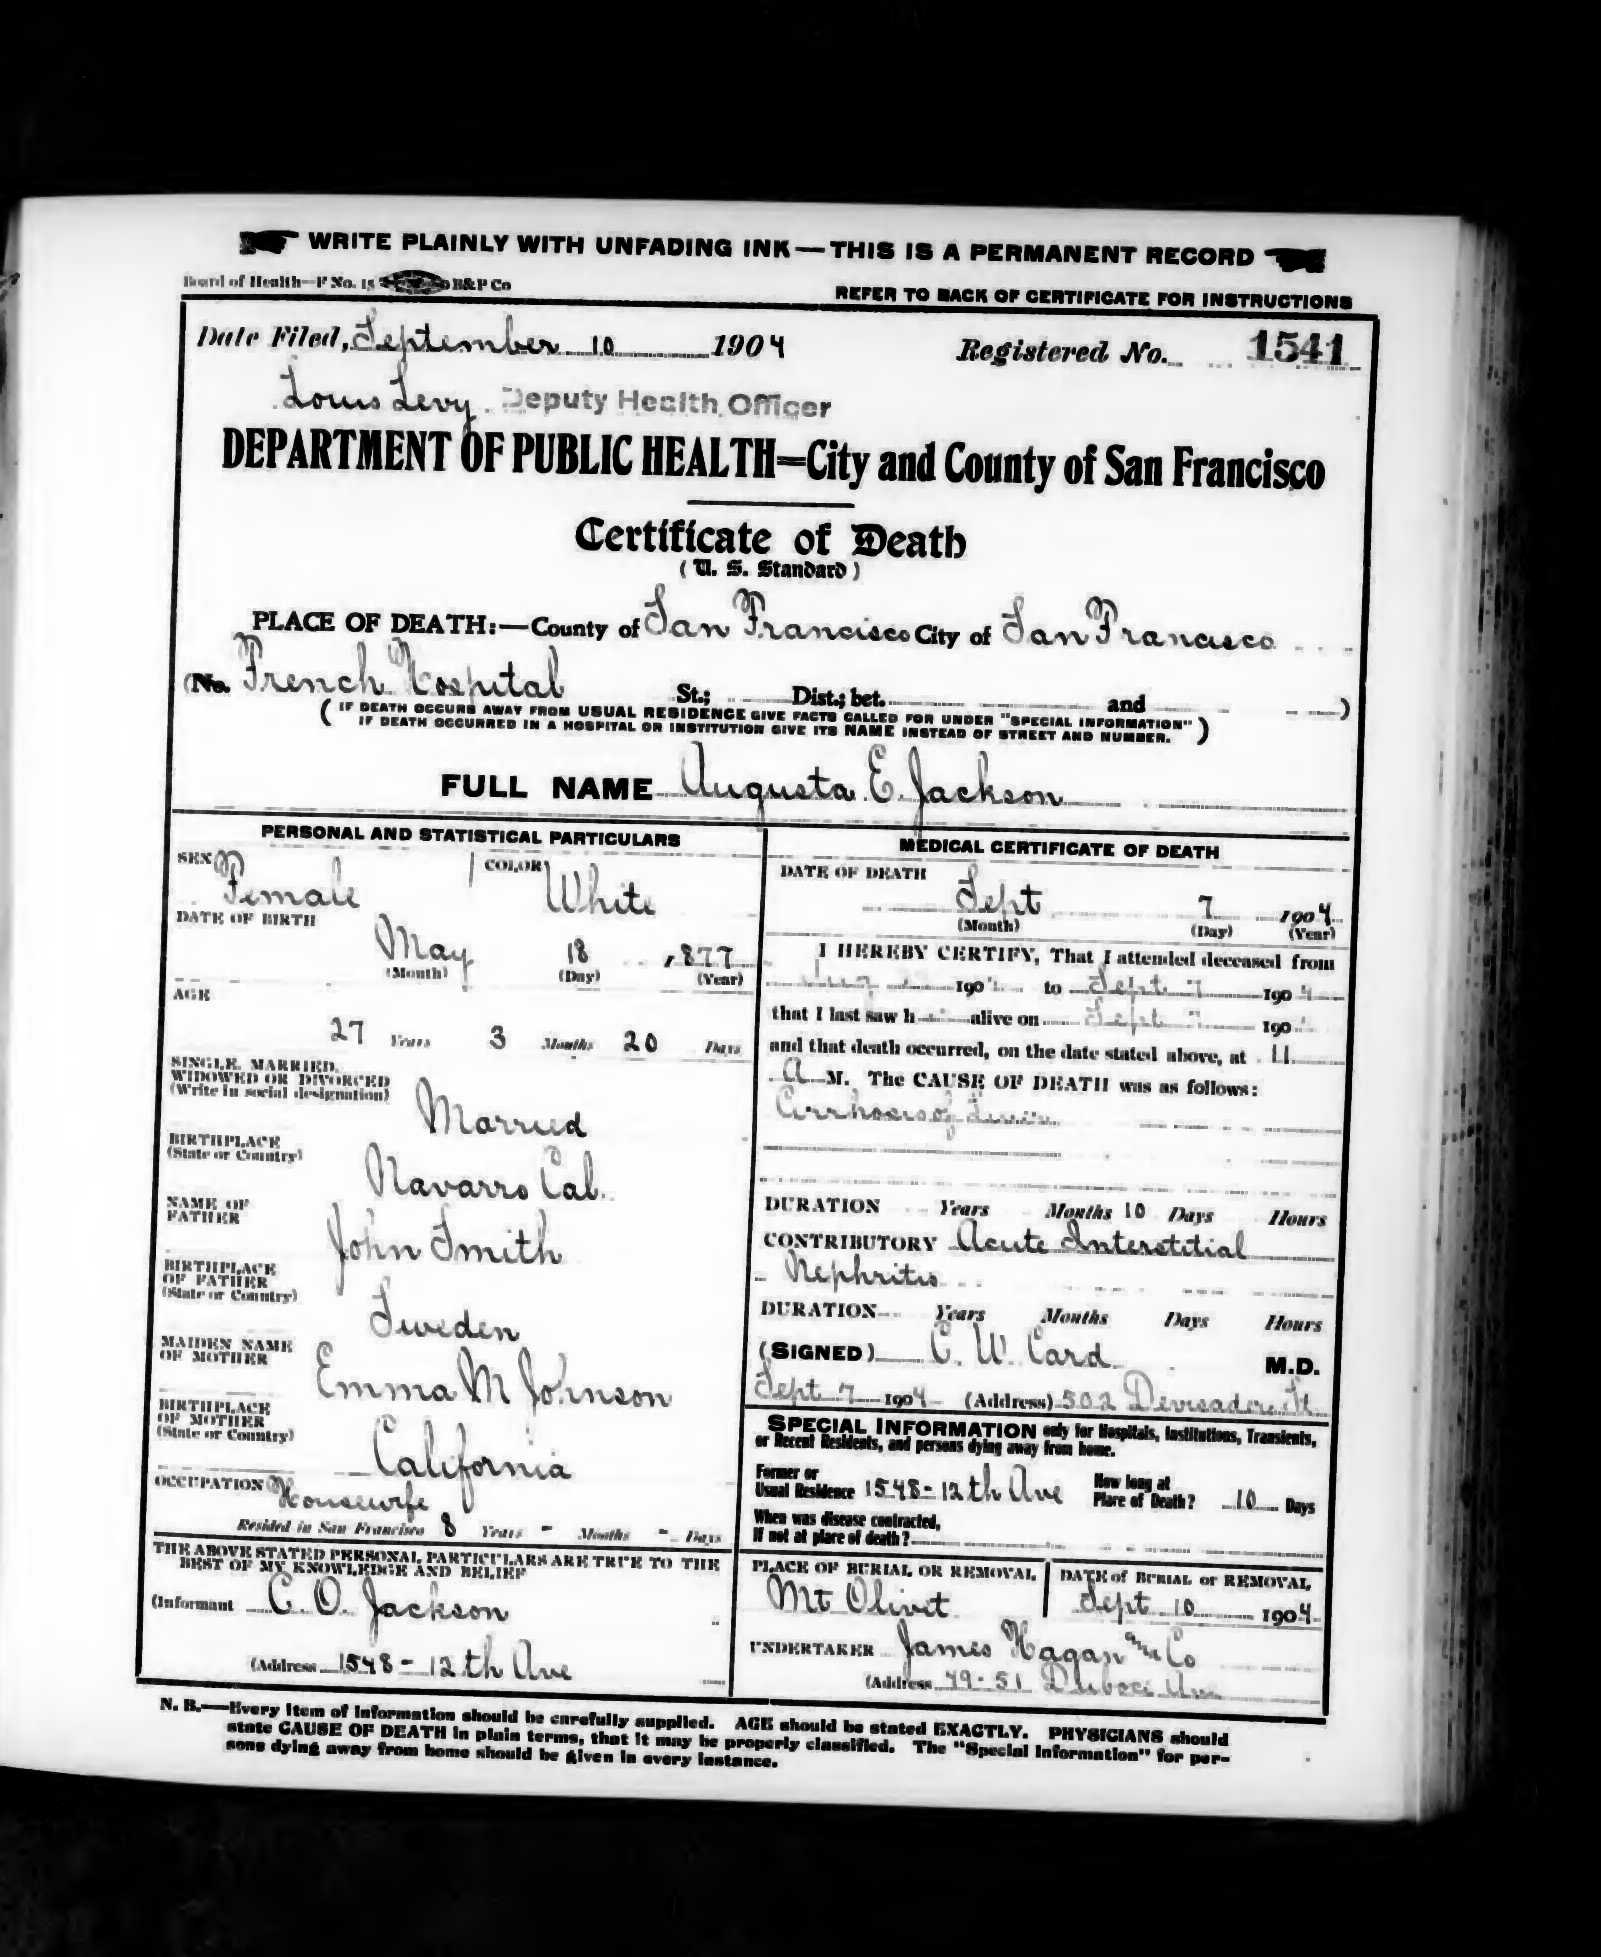 WRITE PLAINLY WITH UNFADING INK—THIS IS A PERMANENT RECORD
Board of Health—F No. 15 B&P Co
REFER TO BACK OF CERTIFICATE FOR INSTRUCTIONS
Date Filed, September 10 1904 Registered No. 1541
Louis Levy Deputy Health Officer
DEPARTMENT OF PUBLIC HEALTH=City and County of San Francisco
Certificate of Death
(U. S. Standard)
PLACE OF DEATH:—County of San Francisco City of San Francisco
(No. French Hospital St.; Dist.; bet. and )
(IF DEATH OCCURS AWAY FROM USUAL RESIDENCE GIVE FACTS CALLED FOR UNDER "SPECIAL INFORMATION"
IF DEATH OCCURRED IN A HOSPITAL OR INSTITUTION GIVE ITS NAME INSTEAD OF STREET AND NUMBER.)
FULL NAME Augusta E. Jackson
PERSONAL AND STATISTICAL PARTICULARS
SEX Female COLOR White
DATE OF BIRTH
May 18 1877
(Month) (Day) (Year)
AGE
27 Years 3 Months 20 Days
SINGLE, MARRIED,
WIDOWED OR DIVORCED
(Write in social designation)
Married
BIRTHPLACE
(State or Country)
Navarro Cal.
NAME OF
FATHER
John Smith
BIRTHPLACE
OF FATHER
(State or Country)
Sweden
MAIDEN NAME
OF MOTHER
Emma M Johnson
BIRTHPLACE
OF MOTHER
(State or Country)
California
OCCUPATION Housewife
Resided in San Francisco 8 Years - Months - Days
THE ABOVE STATED PERSONAL PARTICULARS ARE TRUE TO THE
BEST OF MY KNOWLEDGE AND BELIEF
(Informant C. O. Jackson
(Address 1548-12th Ave
MEDICAL CERTIFICATE OF DEATH
DATE OF DEATH
Sept 7 1904
(Month) (Day) (Year)
I HEREBY CERTIFY, That I attended deceased from
Aug 190 to Sept 7 1904
that I last saw h alive on Sept 7 190
and that death occurred, on the date stated above, at 11
A M. The CAUSE OF DEATH was as follows:
Cirrhosis of Liver
DURATION Years Months 10 Days Hours
CONTRIBUTORY Acute Interstitial
Nephritis
DURATION Years Months Days Hours
(SIGNED) C. W. Card M.D.
Sept 7 1904 (Address) 502 Devisadero St
SPECIAL INFORMATION only for Hospitals, Institutions, Transients,
or Recent Residents, and persons dying away from home.
Former or
Usual Residence 1548-12th Ave How long at
Place of Death? 10 Days
When was disease contracted,
If not at place of death?
PLACE OF BURIAL OR REMOVAL
Mt Olivet
DATE of BURIAL or REMOVAL
Sept 10 1904
UNDERTAKER James Hagan and Co
(Address 49-51 Duboce Ave
N. B.—Every item of information should be carefully supplied. AGE should be stated EXACTLY. PHYSICIANS should
state CAUSE OF DEATH in plain terms, that it may be properly classified. The "Special Information" for per-
sons dying away from home should be given in every instance.